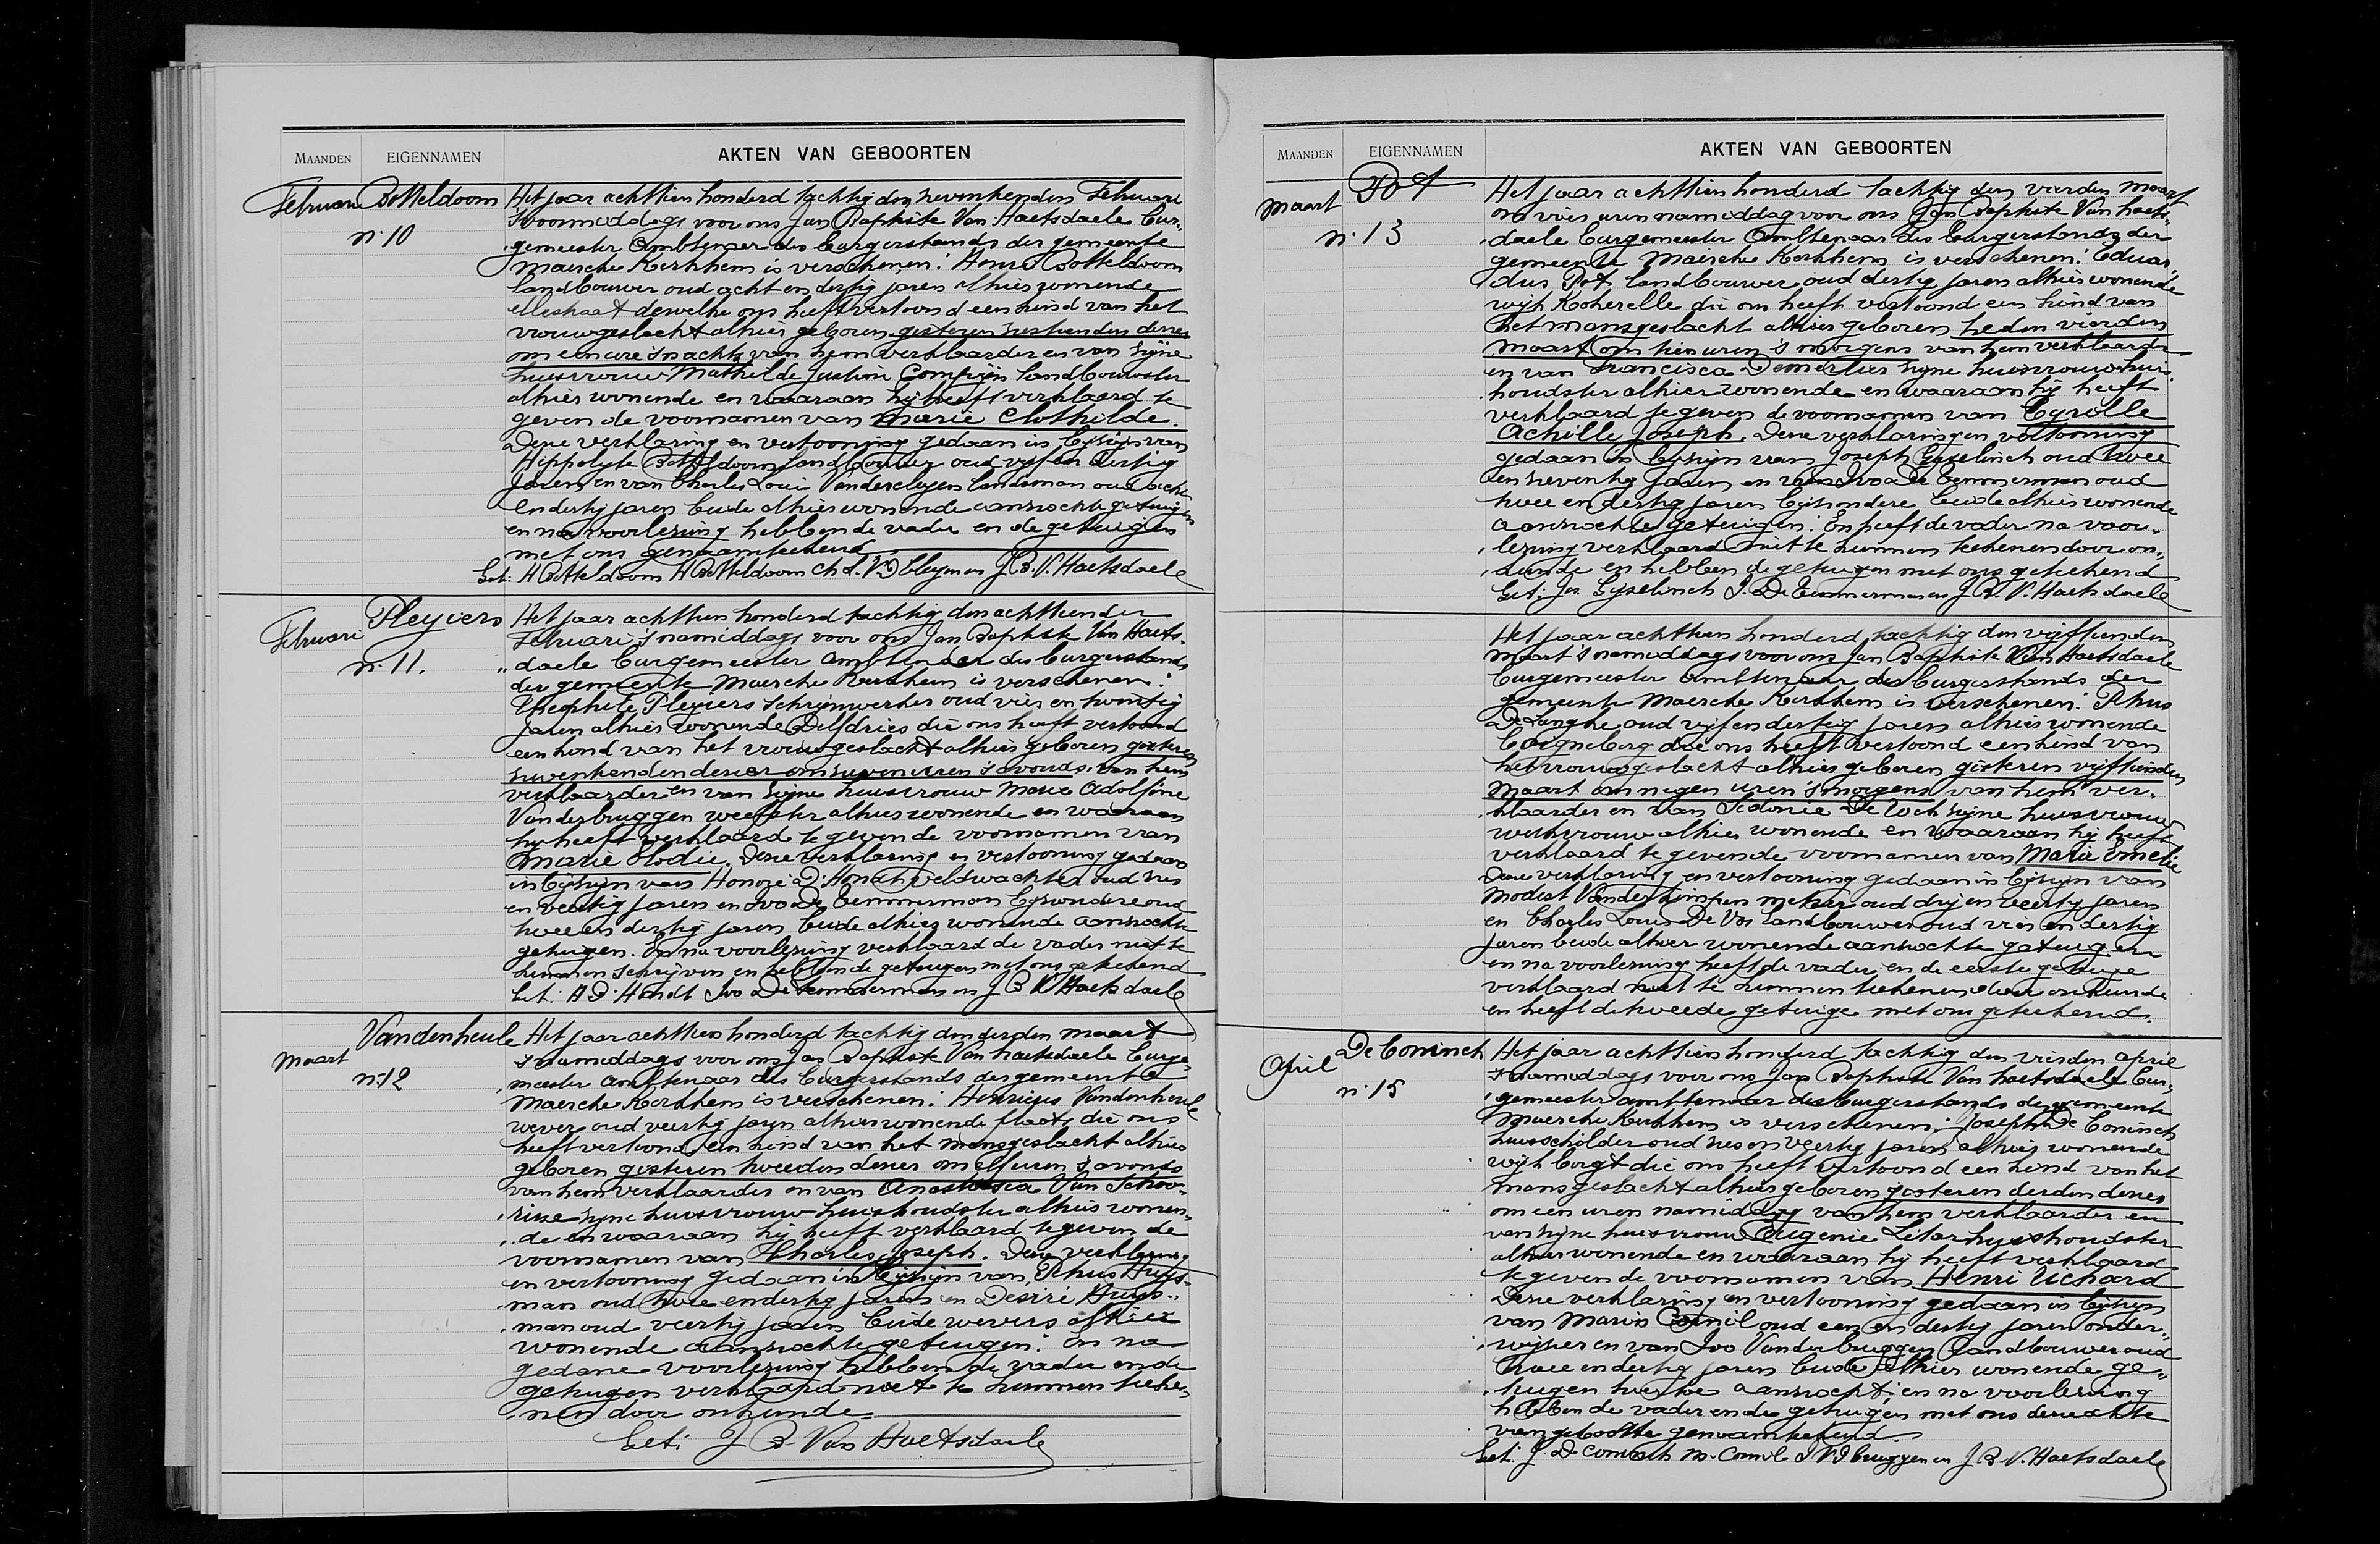 MAANDEN EIGENNAMEN AKTEN VAN GEBOORTEN
Februari Botteldoorn Het jaar achttien honderd tachtig den zeventienden Februari
n: 10 's voormiddags voor ons Jan Baptiste Van Haetsdaele Bur-
gemeester Ambtenaar des burgerstands der gemeente
Maercke Kerkhem is verschenen: Henri Botteldoorn
landbouwer oud acht en dertig jaren alhier wonende
dewelke ons heeft vertoond een kind van het
vrouwgeslacht alhier geboren gisteren zestienden dezer
om een ure 's nachts van hem verklaarder en van zijne
huisvrouw Mathilde Justine landbouwster
alhier wonende en waaraan hij heeft verklaard te
geven de voornamen van Marie Clothilde.
Deze verklaring en vertooning gedaan in bijzijn van
Hippolyte Botteldoorn landbouwer oud vijf en dertig
jaren en van Charles Loui Vandercleyen landsman oud acht
en dertig jaren beide alhier wonende aanzochte getuigen
en na voorlezing hebben de vader en de getuigen
met ons genaamteekend
Get: H Botteldoorn H Botteldoorn Ch L. VD Cleyen en J.B.V. Haetsdaele
Februari Pleyiers Het jaar achttien honderd tachtig den achttienden
n: 11. Februari 's namiddags voor ons Jan Baptiste Van Haets-
daele burgemeester ambtenaar des burgerstands
der gemeente Maercke Kerkhem is verschenen:
Theophile Pleyiers Schrijnwerker oud vier en twintig
jaren alhier wonende Delfdries die ons heeft vertoond
een kind van het vrouwgeslacht alhier geboren gisteren
zeventienden dezer om zeven uren 's avonds van hem
verklaarder en van zijne huisvrouw Marie Adolfine
Vanderbruggen weefster alhier wonende en waaraan
hij heeft verklaard te geven de voornamen van
Marie Elodie. Deze verklaring en vertooning gedaan
in bijzijn van Honoré D'Hondt veldwachter oud zes
en veertig jaren en Ivo De Temmerman bijzondere oud
twee en dertig jaren beide alhier wonende aanzochte
getuigen. En na voorlezing verklaard de vader niet te
kunnen schrijven en hebben de getuigen met ons geteekend
Get: H D'Hondt Ivo De Temmerman en J B V Haetsdaele
Maart Vandenheule Het jaar achttien honderd tachtig den derden maart
n: 12 's namiddags voor ons Jan Baptiste Van Haetsdaele Burge-
meester ambtenaar des burgerstands der gemeente
Maercke Kerkhem is verschenen: Henricus Vandenheule
wever oud veertig jaren alhier wonende plaats die ons
heeft vertoond een kind van het mansgeslacht alhier
geboren gisteren tweeden dezer om elf uren 's avonds
van hem verklaarder en van Anastasia Van Schoo-
risse zijne huisvrouw huishoudster alhier wonen-
de en waaraan hij heeft verklaard te geven de
voornamen van Charles Joseph. Deze verklaring
en vertooning gedaan in bijzijn van Petrus Huys-
man oud twee en dertig jaren en Desiré Huys-
man oud veertig jaren beide wevers alhier
wonende aanzochte getuigen: En na
gedane voorlezing hebben de vader en de
getuigen verklaard niet te kunnen teeke-
nen door onkunde
Get: J B Van Haetsdaele
MAANDEN EIGENNAMEN AKTEN VAN GEBOORTEN
Maart Pot Het jaar achttien honderd tachtig den vierden maart
n: 13 om vier uren namiddag voor ons Jan Baptiste Van Haets-
daele burgemeester Ambtenaar des burgerstands der
gemeente Maercke Kerkhem is verschenen: Eduar
dus Pot landbouwer oud dertig jaren alhier wonende
wijk Kokerelle die ons heeft vertoond een kind van
het mansgeslacht alhier geboren heden vierden
maart om tien uren 's morgens van hem verklaarder
en van Francisca Demerlier zijne huisvrouw huis-
houdster alhier wonende en waaraan hij heeft
verklaard te geven de voornamen van Cyrille
Achille Joseph. Deze verklaring en vertooning
gedaan in bijzijn van Joseph Gyselinck oud twee
en zeventig jaren en van Ivo De Temmerman oud
twee en dertig jaren bijzondere beide alhier wonende
aanzochte getuigen: En heeft de vader na voor-
lezing verklaard niet te kunnen teekenen door on-
kunde en hebben de getuigen met ons geteekend
Get: Jos Gyselinck I. De Temmerman en J B V. Haetsdaele
Het jaar achttien honderd tachtig den vijftienden
maart 's namiddags voor ons Jan Baptiste Van Haetsdaele
burgemeester ambtenaar des burgerstands der
gemeente Maercke Kerkhem is verschenen: Petrus
De Langhe oud vijf en dertig jaren alhier wonende
die ons heeft vertoond een kind van
het vrouwgeslacht alhier geboren gisteren vijftienden
Maart om negen uren 's morgens van hem ver-
klaarder en van Sidonie De Cock zijne huisvrouw
werkvrouw alhier wonende en waaraan hij heeft
verklaard te geven de voornamen van Maria Emelie
Deze verklaring en vertooning gedaan in bijzijn van
Modest metser oud drij en veertig jaren
en Charles Louis De Vos landbouwer oud vier en dertig
jaren beide alhier wonende aanzochte getuigen
en na voorlezing heeft de vader en de eerste getuige
verklaard niet te kunnen teekenen door onkunde
en heeft de tweede getuige met ons geteekend.
April De Coninck Het jaar achttien honderd tachtig den vierden april
n: 15 's namiddags voor ons Jan Baptiste Van Haetsdaele Bur-
gemeester ambtenaar des burgerstands der gemeente
Maercke Kerkhem is verschenen: Joseph De Coninck
huisschilder oud zes en veertig jaren alhier wonende
wijk bergt die ons heeft vertoond een kind van het
mansgeslacht alhier geboren gisteren derden dezer
om een uren namiddag van hem verklaarder en
van zijne huisvrouw Eugenie huishoudster
alhier wonende en waaraan hij heeft verklaard
te geven de voornamen van Henri Richard
Deze verklaring en vertooning gedaan in bijzijn
van Marin Cornil oud een en dertig jaren onder-
wijzer en van Ivo Vanderbruggen landbouwer oud
twee en dertig jaren beide alhier wonende ge-
tuigen hiertoe aanzocht, en na voorlezing
hebben de vader en de getuigen met ons deze akte
van geboorte genaamteekend.
Get: J. De Coninck M. Cornil I VD bruggen en J B V. Haetsdaele